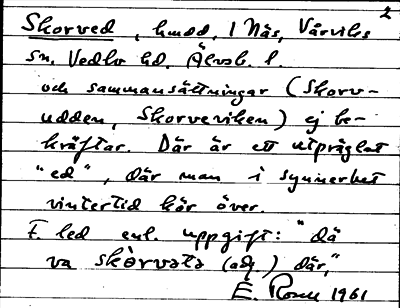 2
Skorved, hmdd, 1 Näs, Vårviks
sn, Vedbo hd. Älvsb. l.
och sammansättningar (Skorv-
udden, Skorveviken) ej be-
kräftar. Där är ett utpräglat
"ed", där man i synnerhet
vintertid kör över.
F. led enl. uppgift: "då
va skòrvətə (adj.) där,"
E. Rosell 1961